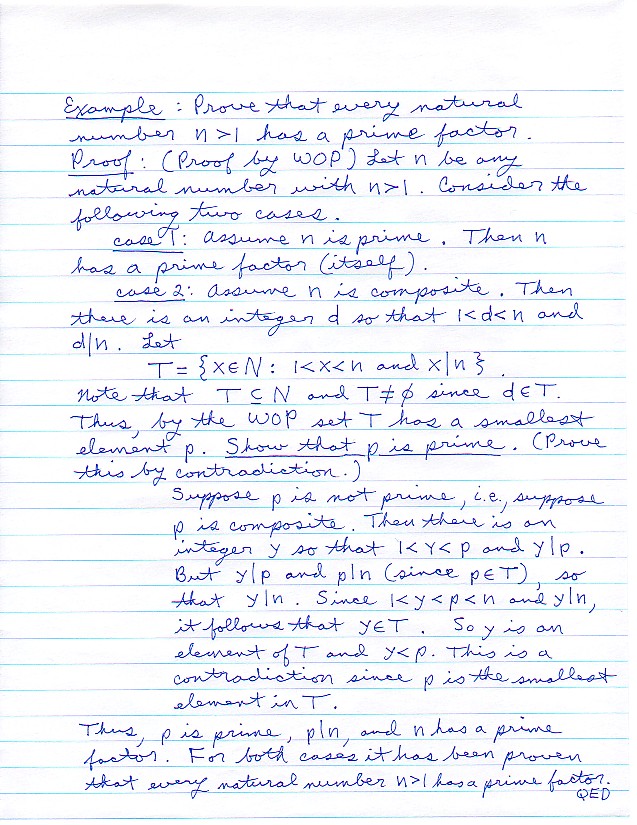 Example : Prove that every natural
number n>1 has a prime factor.
Proof : (Proof by WOP) Let n be any
natural number with n>1. Consider the
following two cases.
case 1: Assume n is prime. Then n
has a prime factor (itself).
case 2: Assume n is composite. Then
there is an integer d so that 1<d<n and
d|n. Let
T = {x∈N: 1<x<n and x|n}.
Note that T ⊆ N and T≠∅ since d∈T.
Thus, by the WOP set T has a smallest
element p. Show that p is prime. (Prove
this by contradiction.)
Suppose p is not prime, i.e., suppose
p is composite. Then there is an
integer y so that 1<y<p and y|p.
But y|p and p|n (since p∈T), so
that y|n. Since 1<y<p<n and y|n,
it follows that y∈T. So y is an
element of T and y<p. This is a
contradiction since p is the smallest
element in T.
Thus, p is prime, p|n, and n has a prime
factor. For both cases it has been proven
that every natural number n>1 has a prime factor.
QED